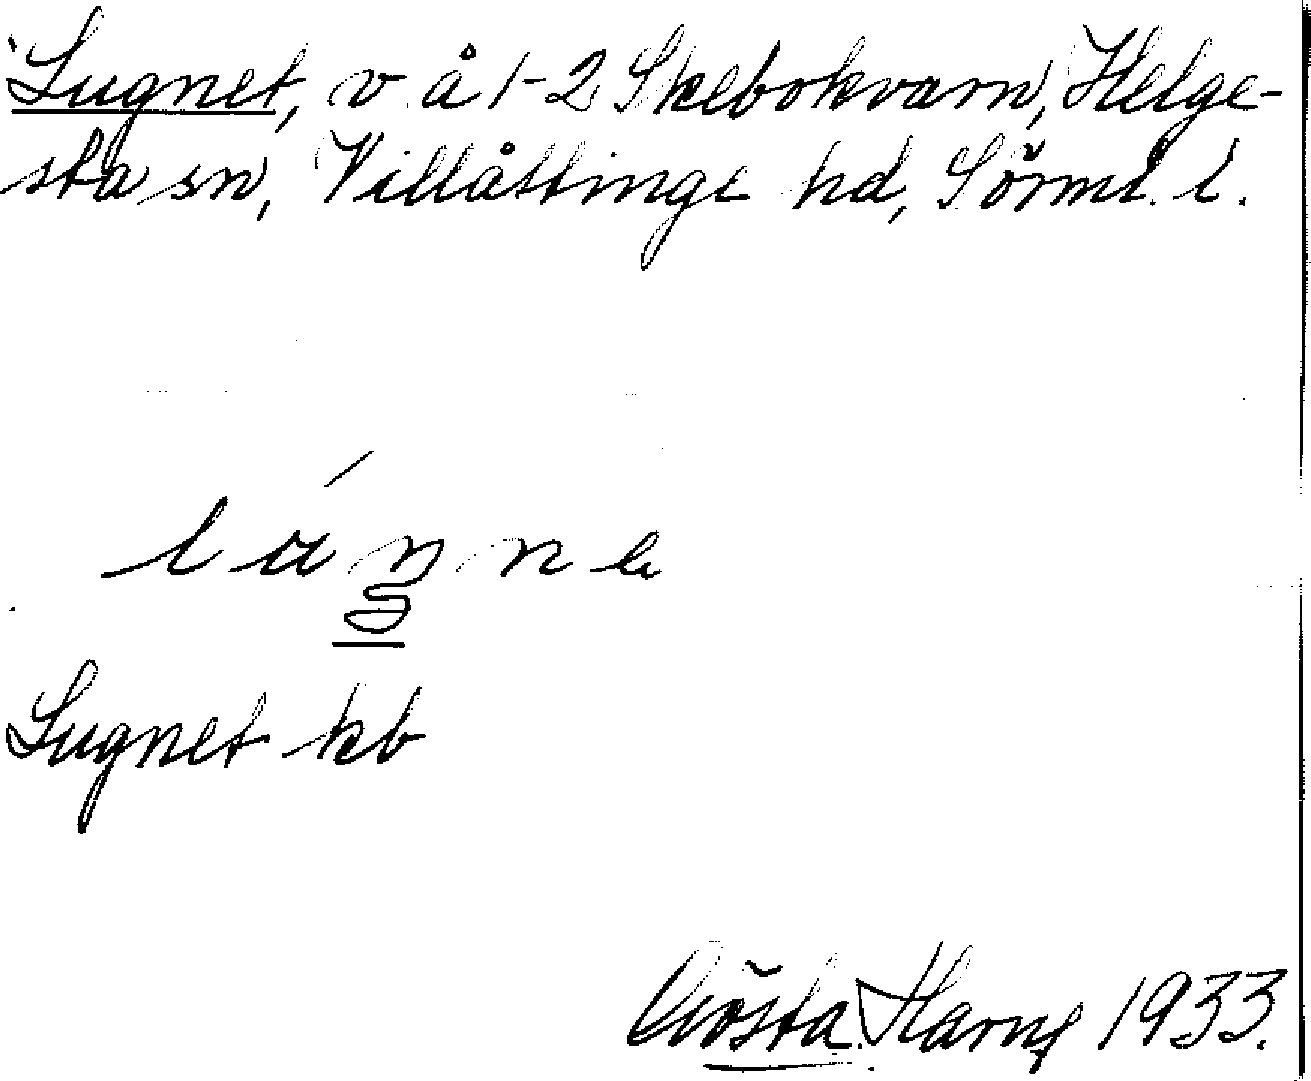 Lugnet, v å 1-2 Skebokvarn, Helge-
sta sn, Villåttinge hd, Sörml. l.
Lugnet kb
Gösta 1933.